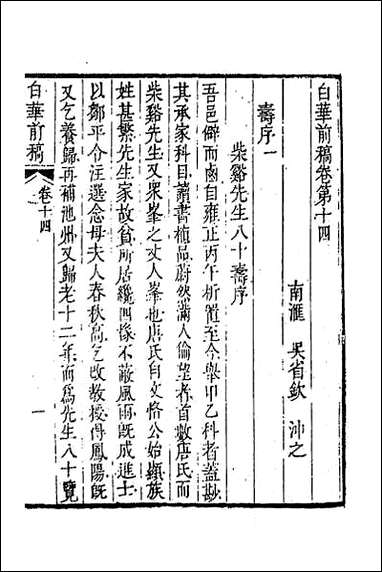 白華前稿卷第十四
南滙 吳省欽 沖之
壽序一
柴谿先生八十壽序
吾邑僻而鹵自雍正丙午析置至今舉甲乙科者蓋尠
其承家科目讀書植品蔚然滿人倫望者首數唐氏而
柴谿先生又眾峯之丈人峯也唐氏自文恪公始顯族
姓甚繁先生家故貧所居纔四椽不蔽風雨旣成進士
以鄒平令汪選念母夫人春秋高乞改教授得鳳陽旣
又乞養歸再補池州又歸老十二年而爲先生八十覽
白華前稿
卷十四
一